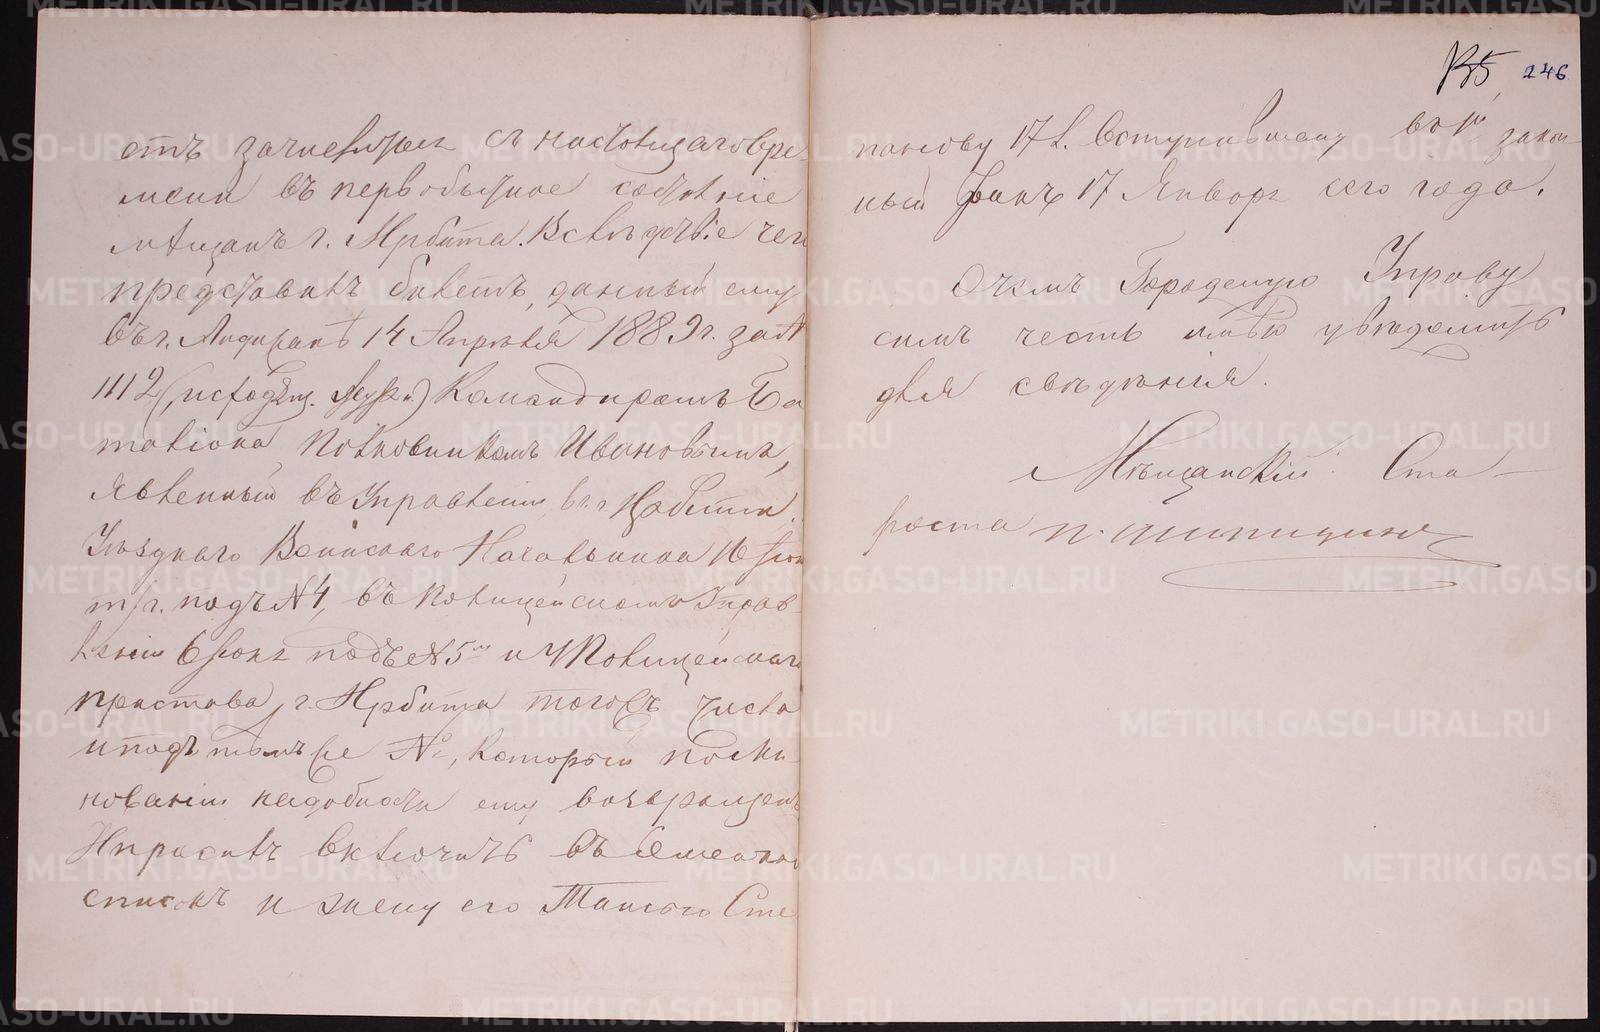 етъ зачислить съ настоящаго вре
мени въ первобытное состояніе
мѣщанъ г. Ирбита. Вслѣдствіе чего
представилъ билетъ, данный ему
въ г. 14 Апрѣля 1889 г. за №
1112 (исходящ. журн.) Командиромъ Ба
таліона Полковникомъ Ивановымъ,
явленный въ Управленіи
Уѣзднаго Воинскаго Начальника 16
т/г. подъ № 4, въ Полицейскомъ Управ
леніи 6 Іюня подъ № 5 и у Полицейскаго
пристава г. Ирбита того жъ числа
и подъ тѣмъ же №, который по ми
нованіи надобности ему возвращенъ
И проситъ включить въ Семейный
списокъ и жену его Таисью Сте
135 246
панову 17 л. вступившему въ 1й закон-
ный бракъ 17 Января сего года.
О чемъ Городскую Управу
симъ честь имѣю увѣдомить
для свѣдѣнія.
Мѣщанскій Ста-
роста П. Шипицинъ
METRIKI.GASO-URAL.RU